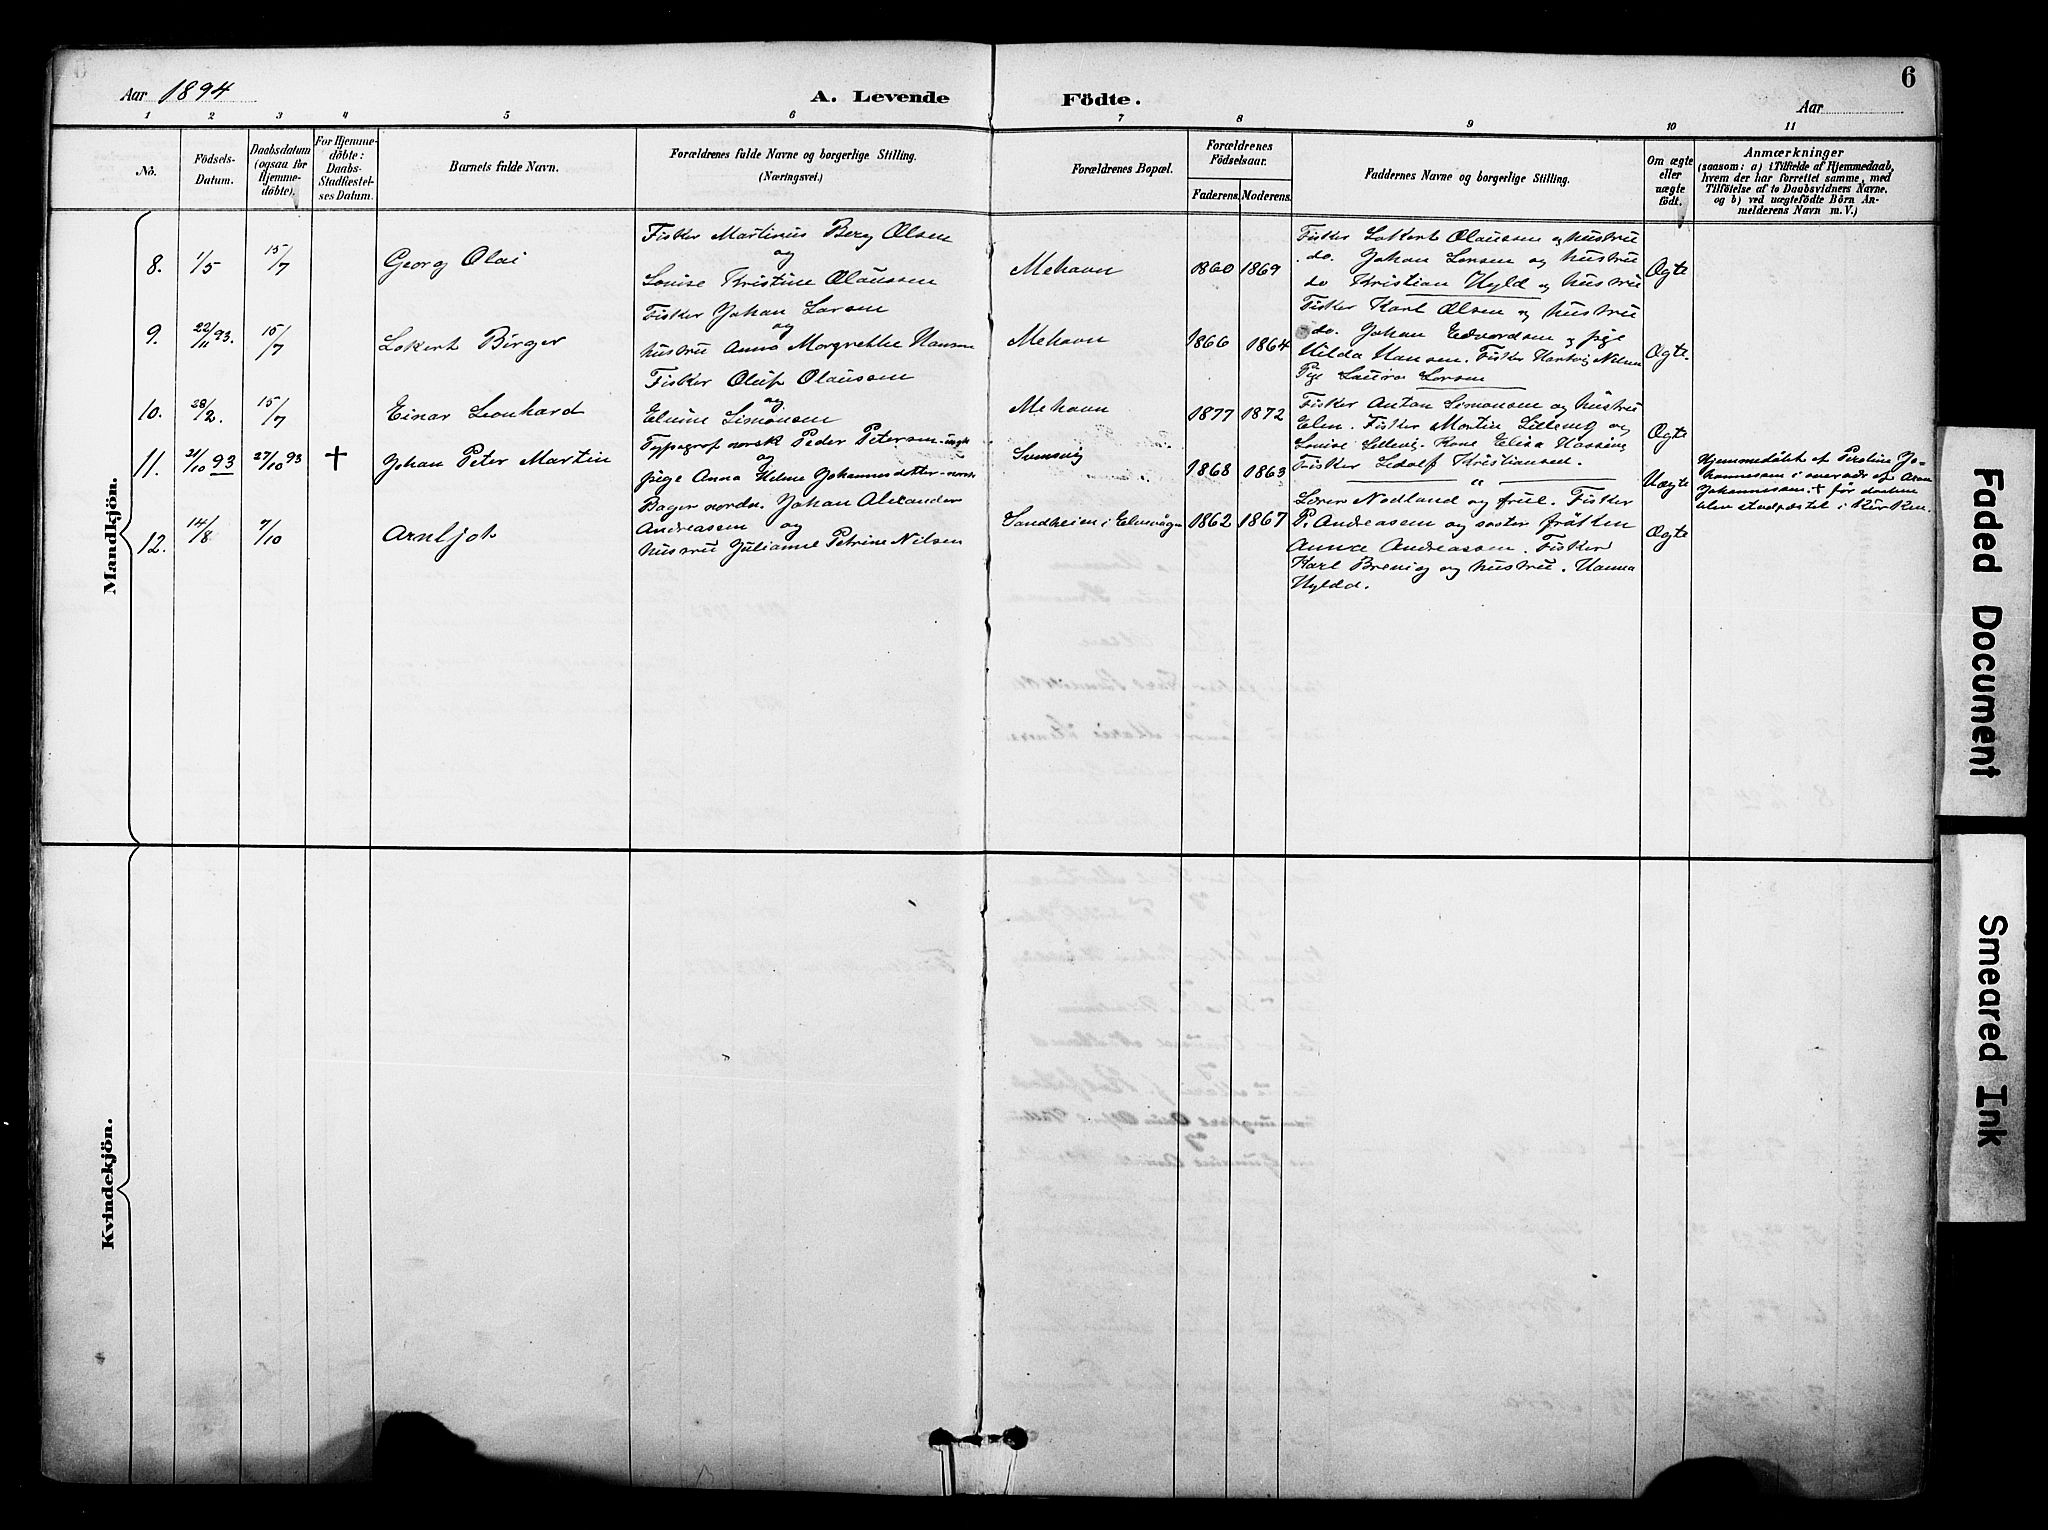 6
Aar 1894
A. Levende Födte.
Aar
1 2 3 4 5 6 7 8 9 10 11
No.
Födsels-Datum.
Daabsdatum (ogsaa for Hjemme-döbte).
For Hjemme-döbte: Daabs-Stadfæstel-ses Datum.
Barnets fulde Navn.
Forældrenes fulde Navne og borgerlige Stilling.
(Næringsvei.)
Forældrenes Bopæl.
Forældrenes Födselsaar.
Faderens. Moderens.
Faddernes Navne og borgerlige Stilling.
Om ægte eller uægte födt.
Anmærkninger
(saasom: a) i Tilfælde af Hjemmedaab,
hvem der har forrettet samme, med
Tilföielse af to Daabsvidners Navne.
og b) ved uægtefödte Börn An-
melderens Navn m. V.)
Mandkjön.
8. 1/5 15/7 Georg Olai
Fisker Martinus Berg Olsen
og
Louise Kristine Olaussen
Mehavn 1860 1869
Fisker Lokert Olaussen og hustru
do. Johan Larsen og hustru
do Kristian Hyld og hustru
Ægte
9. 22/11 93. 15/7 Lokert Birger
Fisker Johan Larsen
og
hustru Anna Margrethe Hansen
Mehavn 1866 1864
Fisker Karl Olsen og hustru
do. Johan Edvardsen og pige
Hilda Hansen. Fisker Hartvig Nilsen
Pige Laura Larsen
Ægte.
10. 28/2. 15/7 Einar Leonhard
Fisker Oluf Olaussen
og
Elvine Simonsen
Mehavn 1877 1872
Fisker Anton Simonsen og hustru
Elen. Fisker Martin Lillevig og
Louise Lillevig. Kone Elisa Hassing
Ægte
11. 21/10 93 27/10 93 † Johan Peter Martin
Typograf norsk Peder Petersen-ungk
og
pige Anna Helene Johannesdatter-norsk
1868 1863
Fisker Edolf Kristiansen.
Uægte
Hjemmedöbt af Peroline Jo-
hannessen i overvær af Aron
Johannessen. † før daaben
blev stadfæstet i Kirken.
12. 14/8 7/10 Arnljot
Bager nordm. Johan Alexander
Andreassen og
hustru Julianne Petrine Nilsen
Sandheim i 1862 1867
Lærer Nodland og frue. Fisker
P. Andreassen og søster frøken
Anna Andreassen. Fisker
Karl Brevig og hustru. Hanna
Hyldd.
Ægte
Kvindekjön.
Faded Document
Smeared Ink